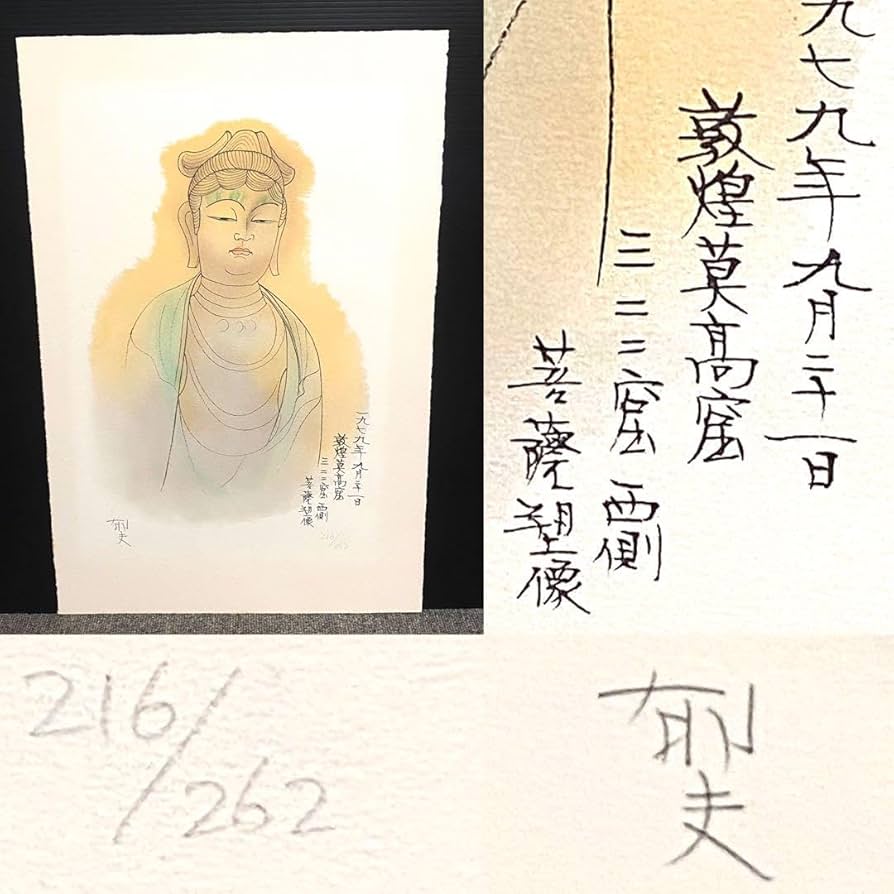 一九七九年九月二十一日
敦煌莫高窟
三二二窟西側
菩薩塑像
郁夫
216/262
九七九年九月二十一日
敦煌莫高窟
三二二窟西側
菩薩塑像
216/262
郁夫